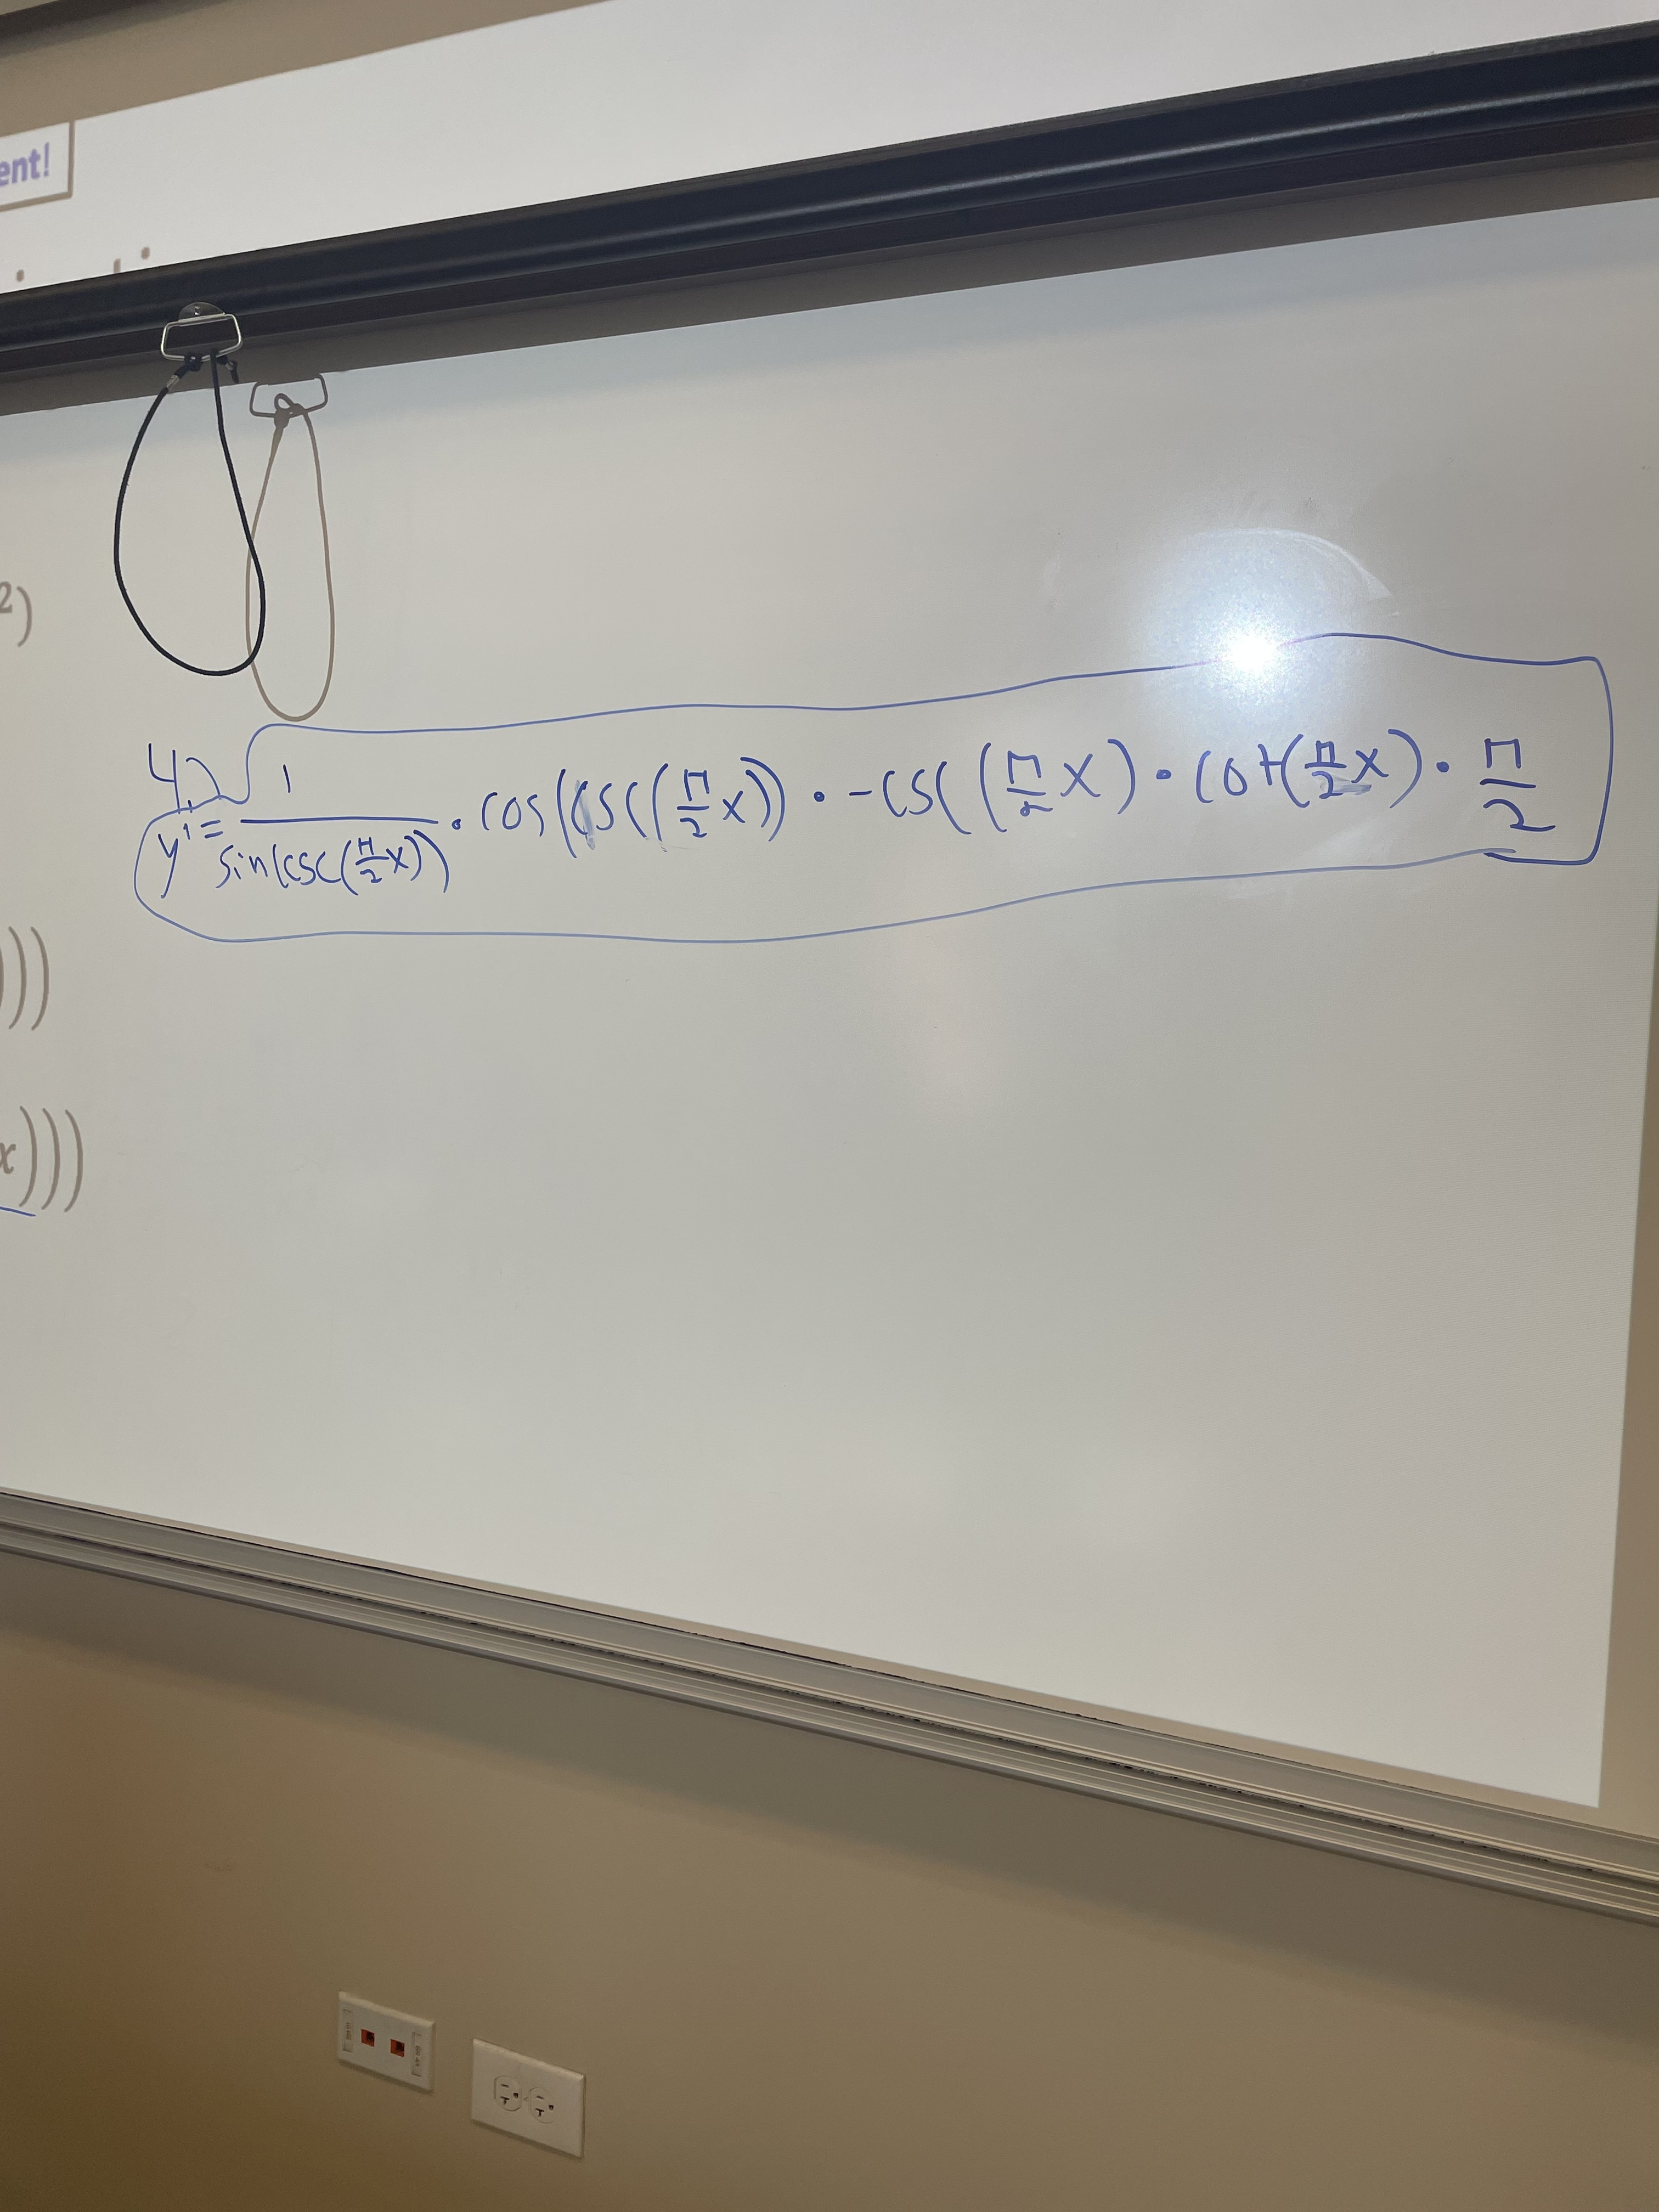 ent!
2)
4.)
y' = 1/sin(csc(π/2 x)) • cos(csc(π/2 x)) • -csc(π/2 x) • cot(π/2 x) • π/2
)))
x)))